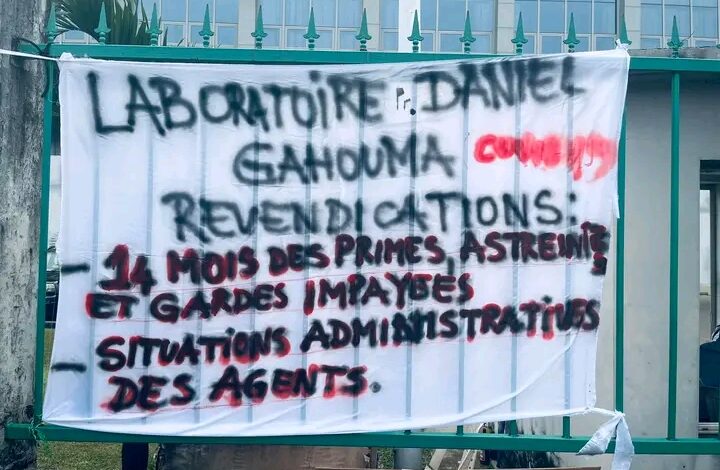 LABORATOIRE Pr. DANIEL
GAHOUMA
REVENDICATIONS:
- 14 MOIS DES PRIMES, ASTREINTES
ET GARDES IMPAYEES
- SITUATIONS ADMINISTRATIVES
DES AGENTS.